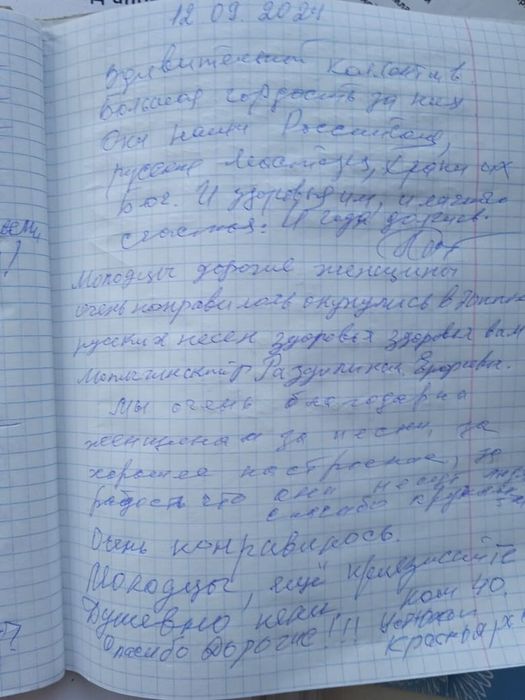 12 09. 2024
Удивительный Коллектив
Большая гордость за них
Они наши Российские,
русские храни их
Бог. И здоровья им, и личного
счастья. И года долгие.
Молодцы дорогие женщины
очень понравилось окунулись в
русских песен здоровья здоровья вам
Мы очень благодарны
женщинам за песни, за
хорошее настроение, за
радость что они несут
спасибо
Очень понравилось.
Молодцы, ещё приезжайте
Душевно пели. ком 40.
Спасибо Дорогие!!!
Краснояр